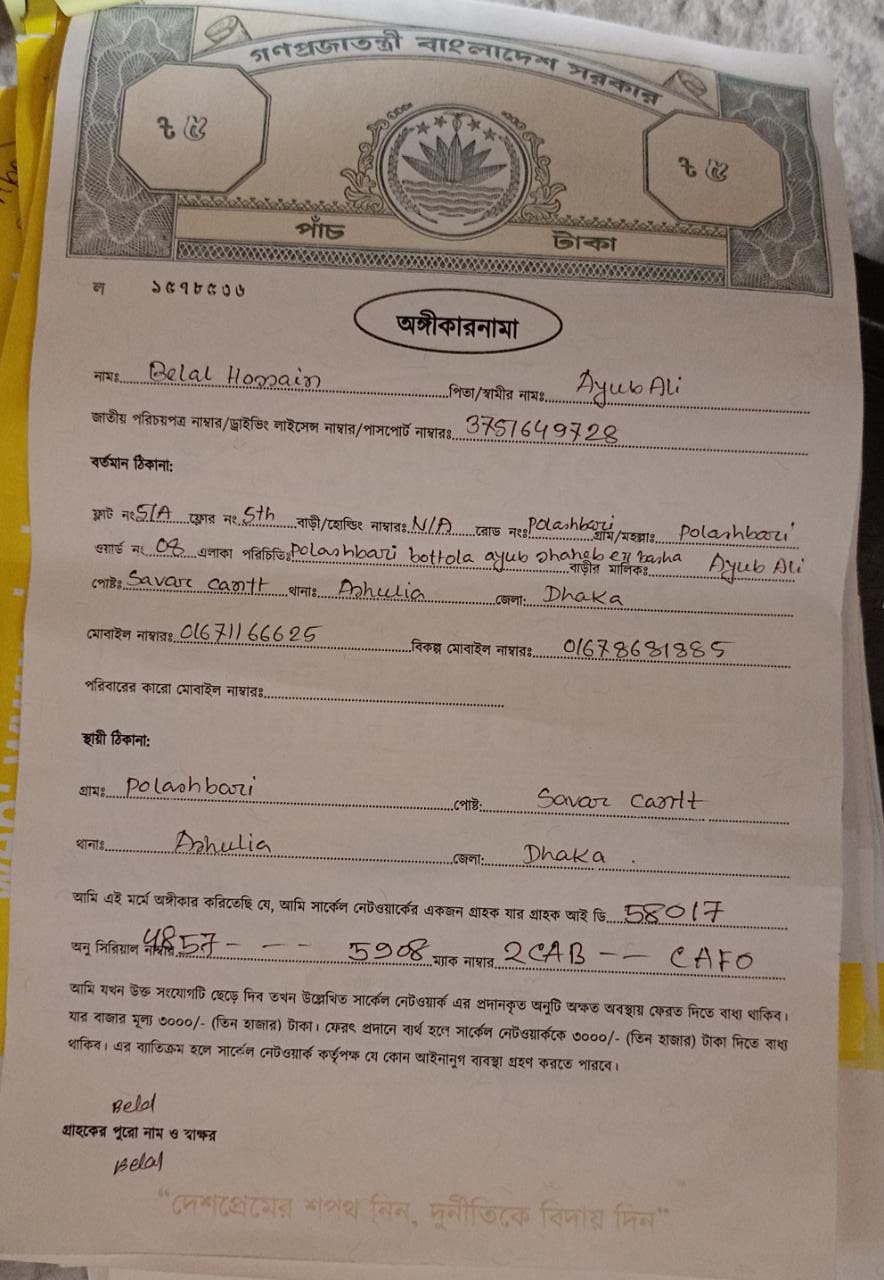 গণপ্রজাতন্ত্রী বাংলাদেশ সরকার
৳ ৫ ৳ ৫
পাঁচ টাকা
ল ১৫৭৮৫৩৬
অঙ্গীকারনামা
নামঃ Belal Hossain পিতা/স্বামীর নামঃ Ayub Ali
জাতীয় পরিচয়পত্র নাম্বার/ড্রাইভিং লাইসেন্স নাম্বার/পাসপোর্ট নাম্বারঃ 3751649728
বর্তমান ঠিকানা:
ফ্লাট নং 5/A ফ্লোর নং 5th বাড়ী/হোল্ডিং নাম্বারঃ N/A রোড নংঃ Polashbari গ্রাম/মহল্লাঃ Polashbari
ওয়ার্ড নং 08 এলাকা পরিচিতিঃ Polashbari bottola ayub shaheb er basha বাড়ীর মালিকঃ Ayub Ali
পোষ্টঃ Savar cantt থানাঃ Ashulia জেলা: Dhaka
মোবাইল নাম্বারঃ 01671166625 বিকল্প মোবাইল নাম্বারঃ 01678681885
পরিবারের কারো মোবাইল নাম্বারঃ
স্থায়ী ঠিকানা:
গ্রামঃ Polashbari পোষ্ট: Savar cantt
থানাঃ Ashulia জেলা: Dhaka.
আমি এই মর্মে অঙ্গীকার করিতেছি যে, আমি সার্কেল নেটওয়ার্কের একজন গ্রাহক যার গ্রাহক আই ডি 58017
অনু সিরিয়াল নাম্বার 4857- -- 5908 ম্যাক নাম্বার 2CAB -- CAFO
আমি যখন উক্ত সংযোগটি ছেড়ে দিব তখন উল্লেখিত সার্কেল নেটওয়ার্ক এর প্রদানকৃত অনুটি অক্ষত অবস্থায় ফেরত দিতে বাধ্য থাকিব।
যার বাজার মূল্য ৩০০০/- (তিন হাজার) টাকা। ফেরৎ প্রদানে ব্যর্থ হলে সার্কেল নেটওয়ার্ককে ৩০০০/- (তিন হাজার) টাকা দিতে বাধ্য
থাকিব। এর ব্যতিক্রম হলে সার্কেল নেটওয়ার্ক কর্তৃপক্ষ যে কোন আইনানুগ ব্যবস্থা গ্রহণ করতে পারবে।
Belal
গ্রাহকের পুরো নাম ও স্বাক্ষর
Belal
“দেশপ্রেমের শপথ নিন, দুর্নীতিকে বিদায় দিন”